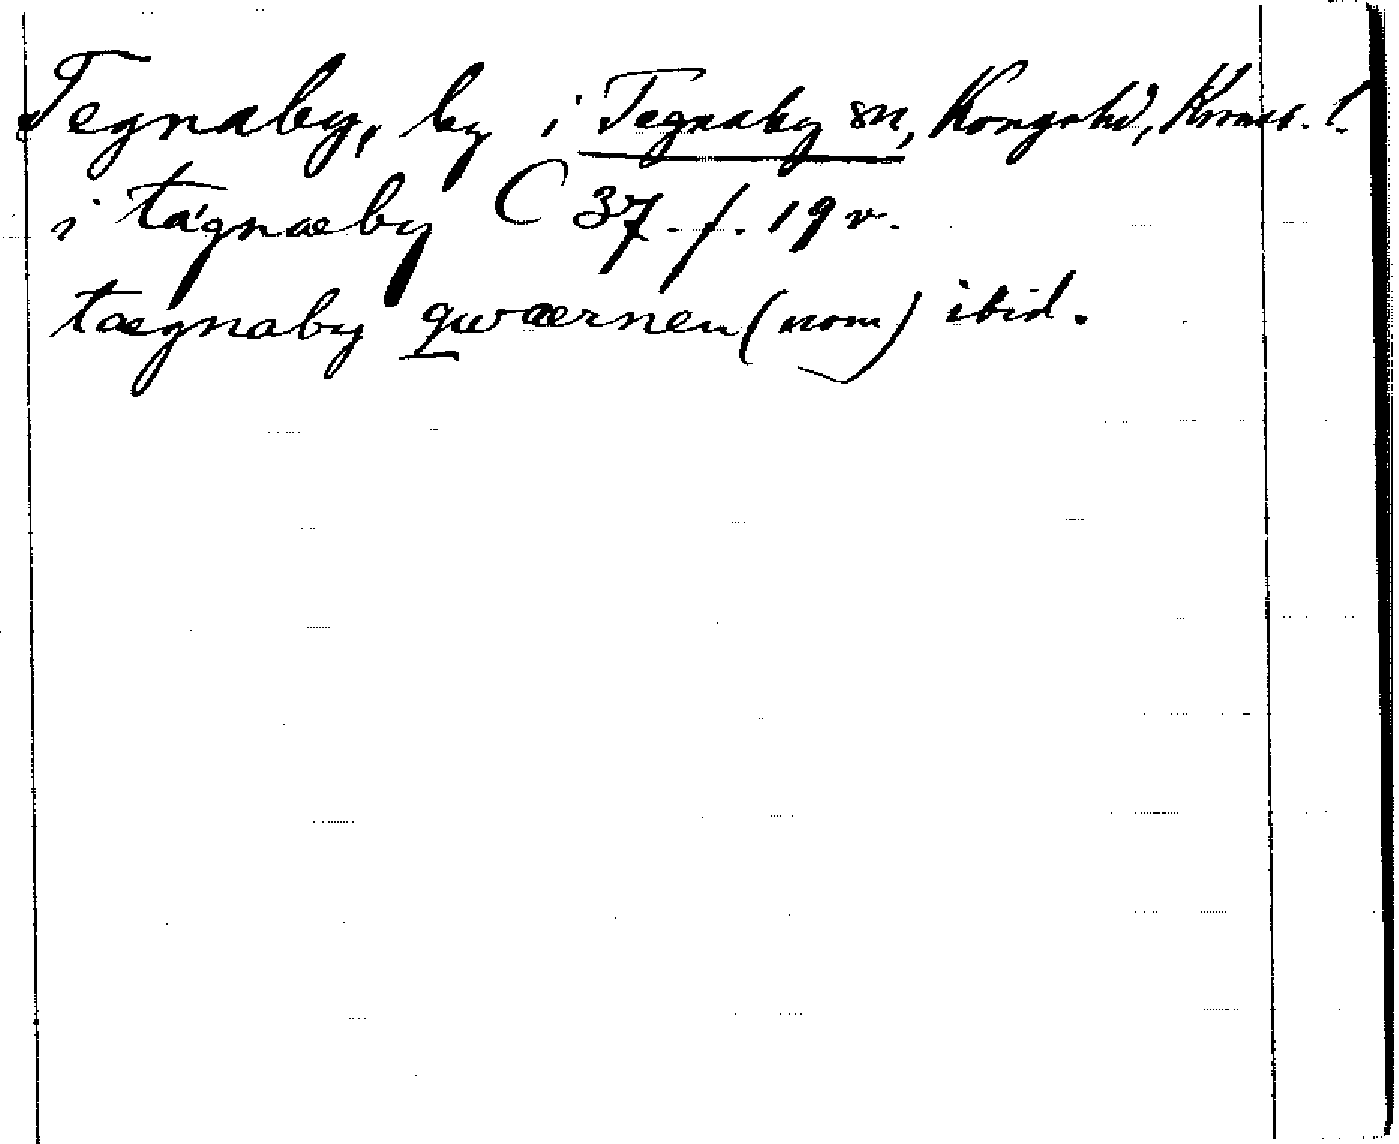 Tegnaby, by i Tegnaby sn, Konga hd, Kronob. l.
i tägnæby C 37. f. 19 v.
tægnaby qwærnen (nom) ibid.